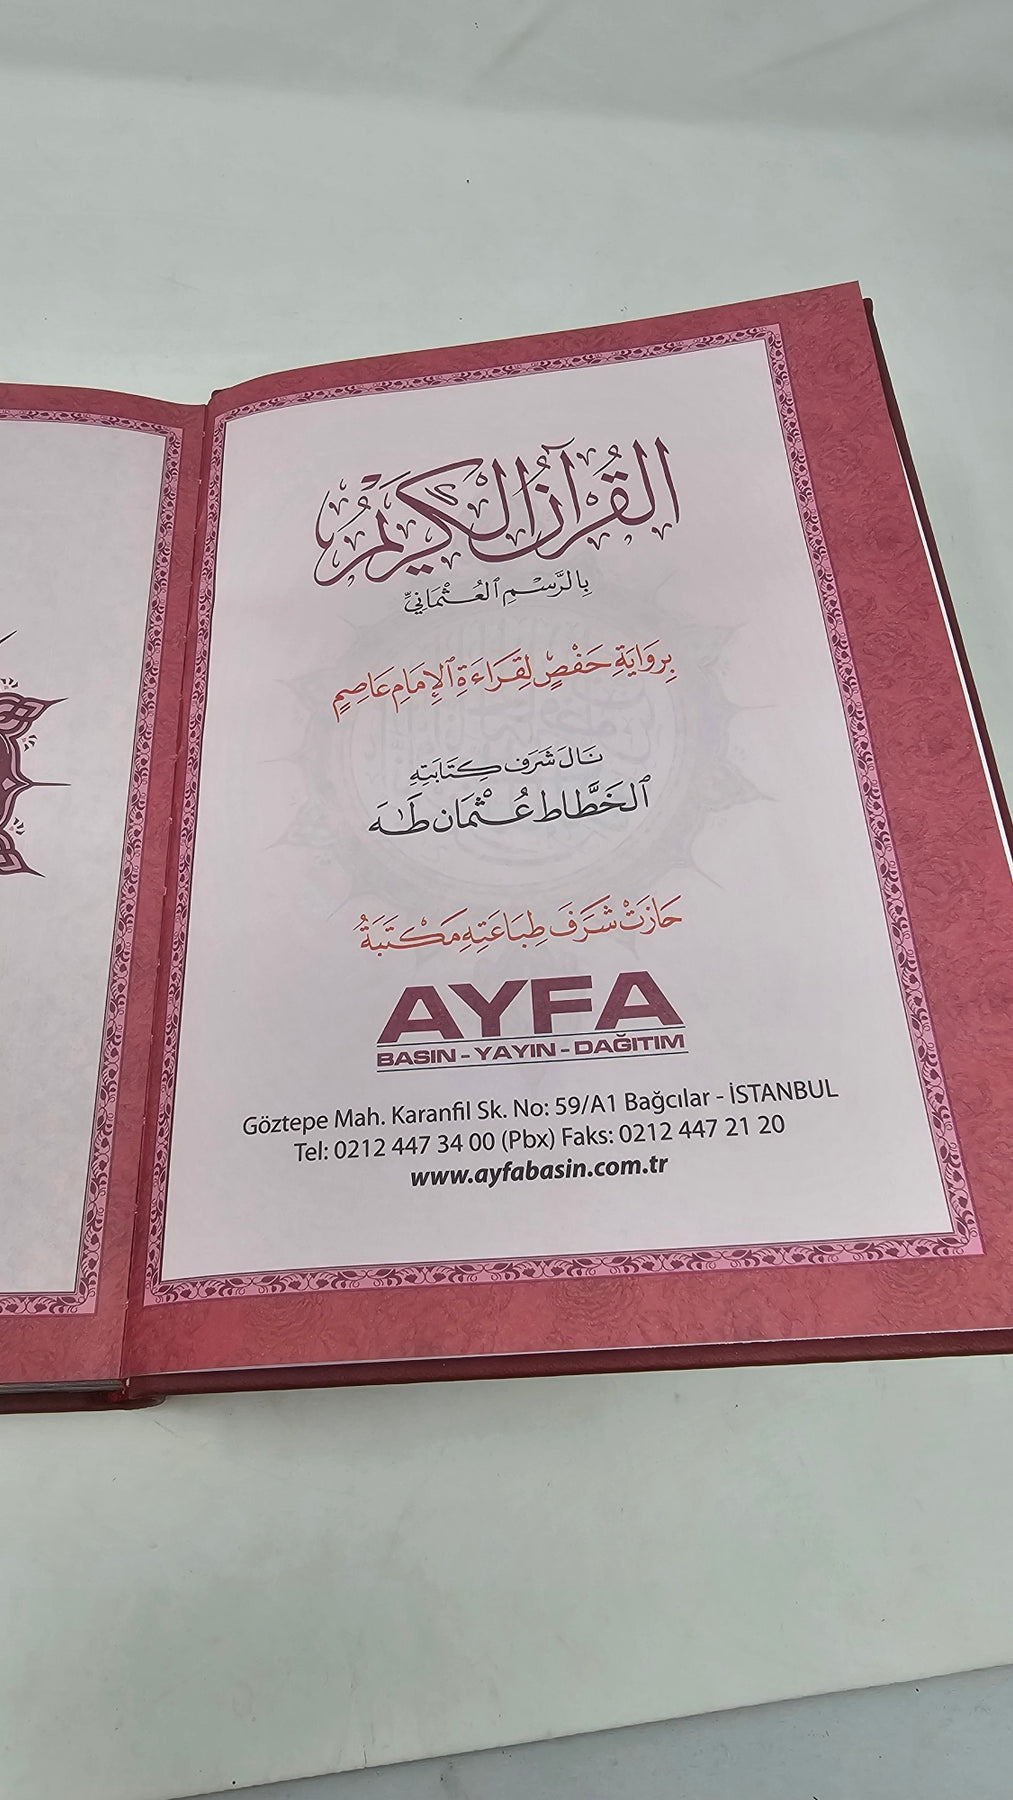 القُرآنُ الكَرِيمُ
بِالرَّسْمِ ٱلعُثْمَانِيِّ
بِرِوَايَةِ حَفْصٍ لِقَرَاءَةِ ٱلإِمَامِ عَاصِمٍ
نَالَ شَرَفَ كِتَابَتِهِ
ٱلخَطَّاط عُثْمَان طَٰهَ
حَازَتْ شَرَفَ طِبَاعَتِهِ مَكْتَبَةُ
AYFA
BASIN - YAYIN - DAĞITIM
Göztepe Mah. Karanfil Sk. No: 59/A1 Bağcılar - İSTANBUL
Tel: 0212 447 34 00 (Pbx) Faks: 0212 447 21 20
www.ayfabasin.com.tr